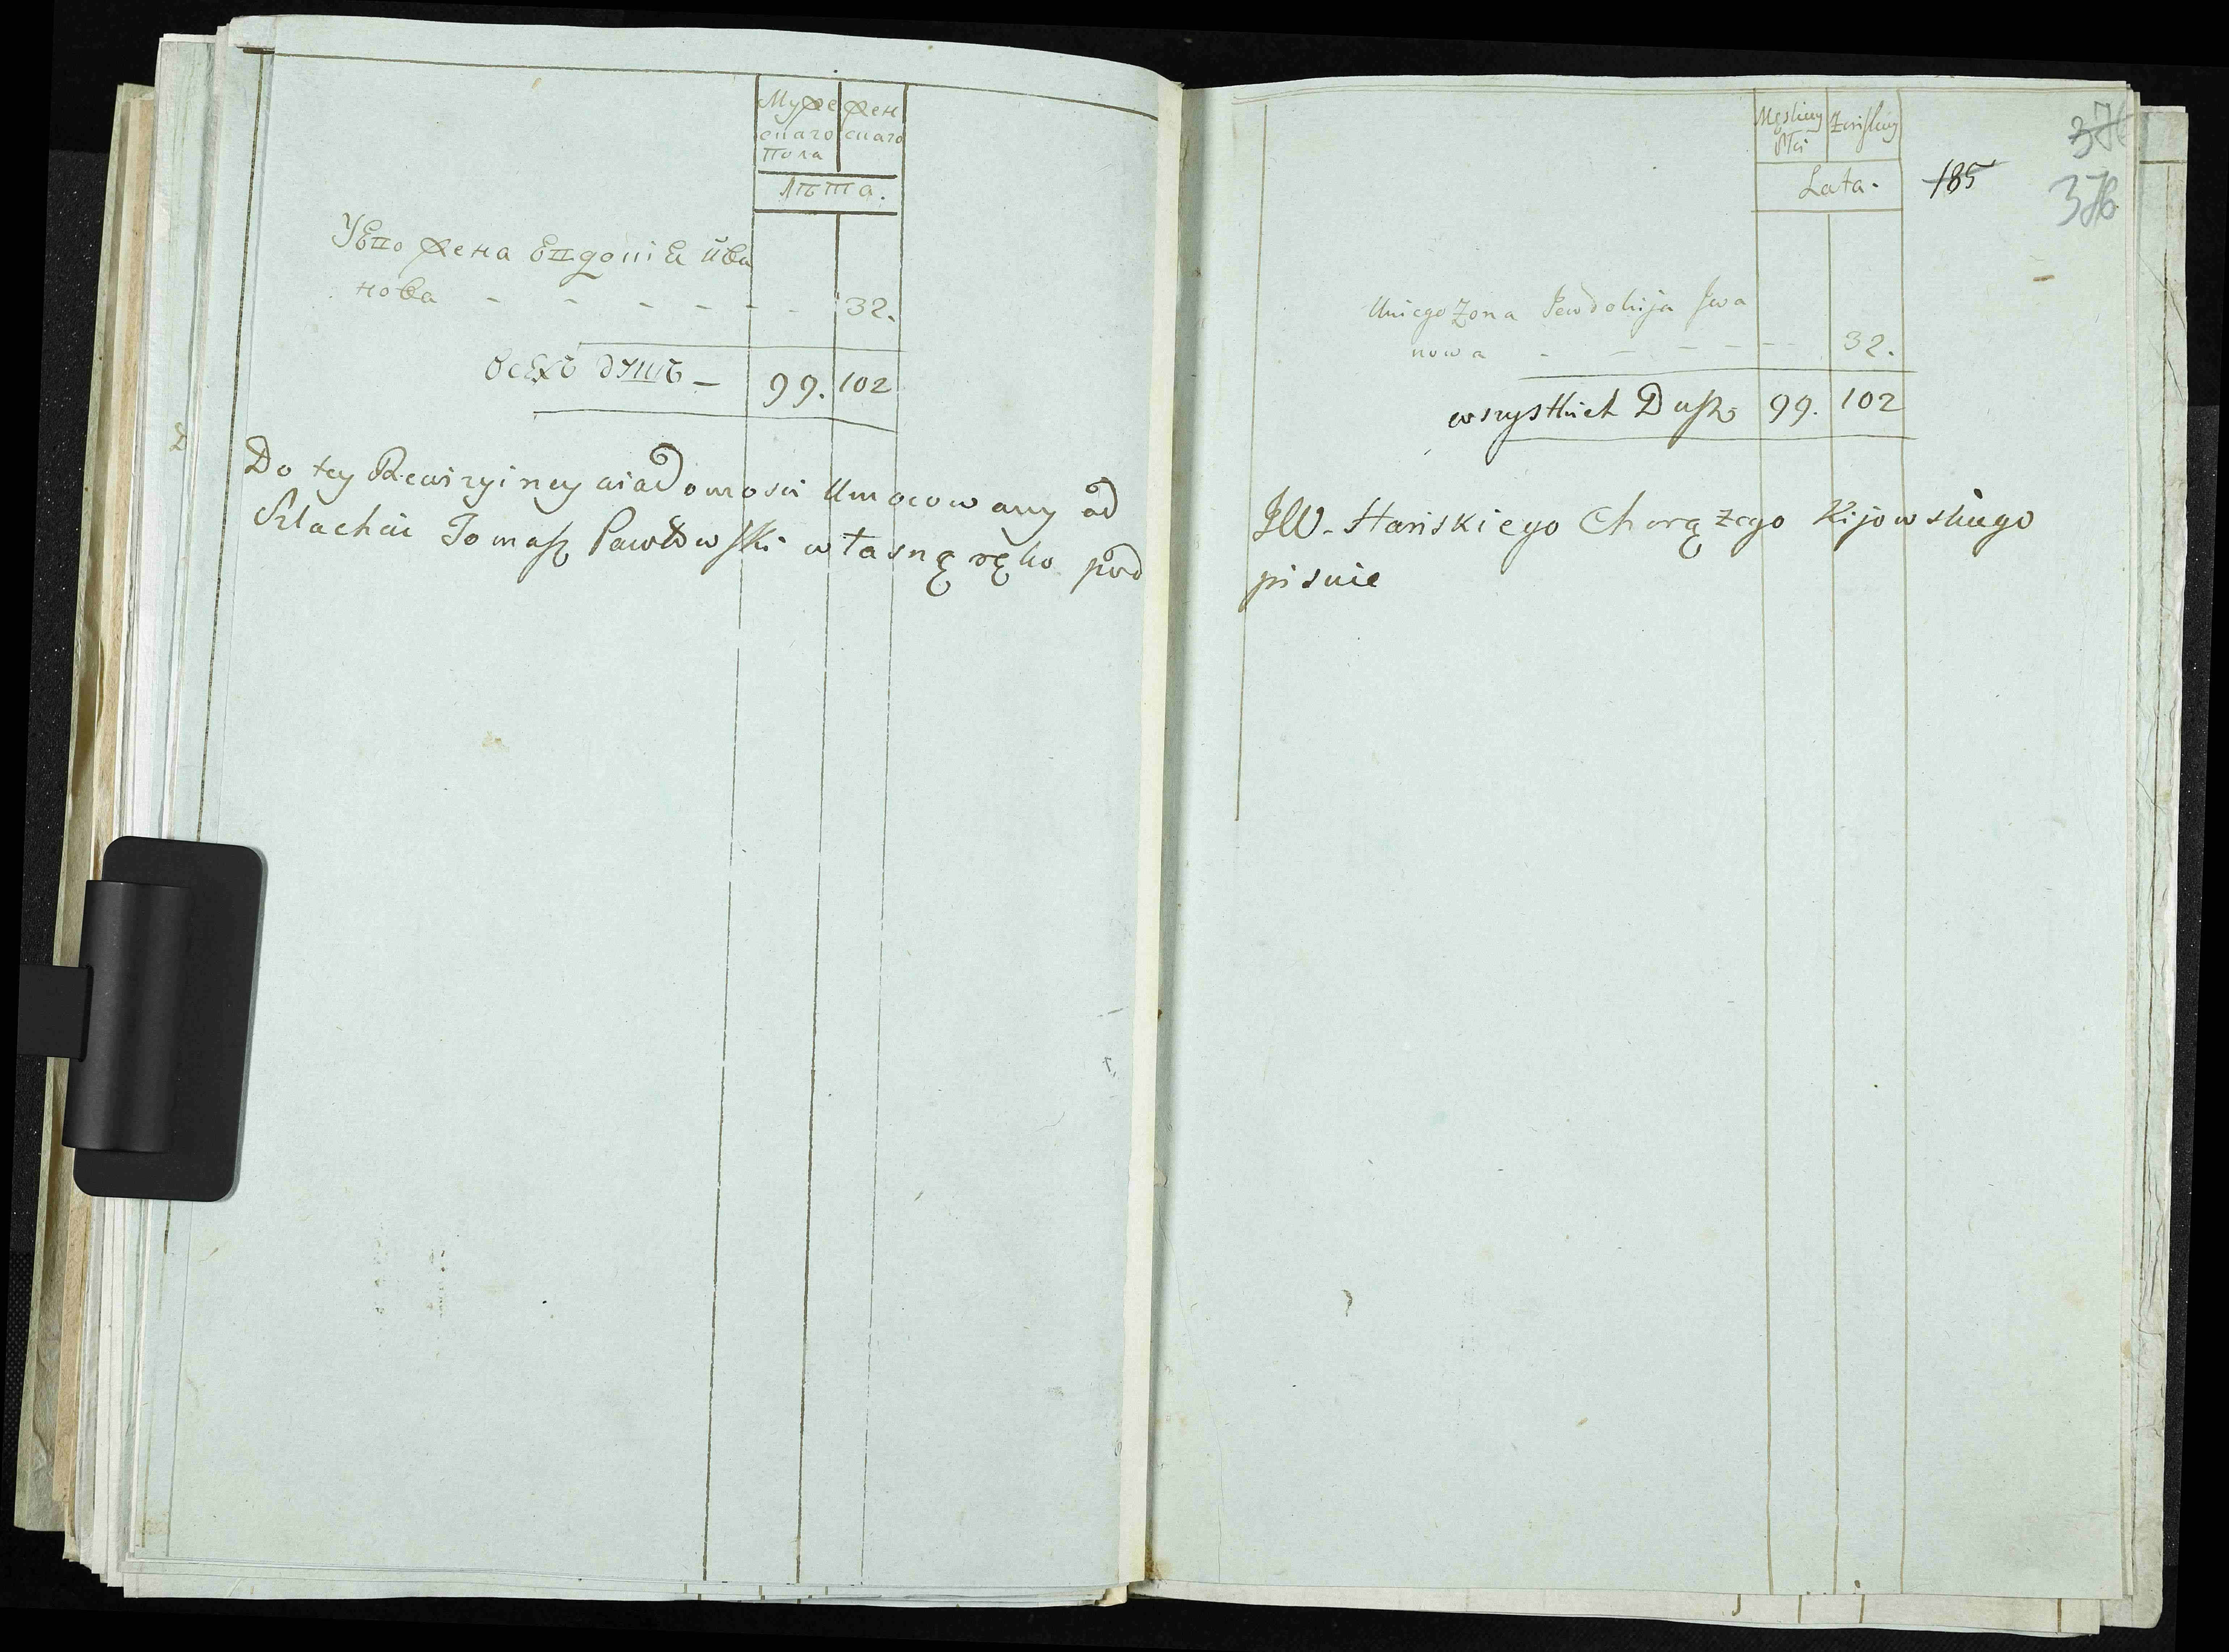 Муже жен
скаго скаго
пола
лѣта.
У Его жена Евдокиѣ ива
нова - - - - - - 32.
всехъ душъ - 99. 102
Do tey Rewizyiney wiadomosci Umocowany od
Szlachcic Tomasz Pawłowski własną ręko pod
Męskiey Płci Zeńskiey
Lata.
185
376
376
U niego Zona Jewdokija Jwa
nowa - - - - - 32.
wszystkich Dusz 99. 102
JW. Hańskiego Chorążego Kijowskiego
pisuie